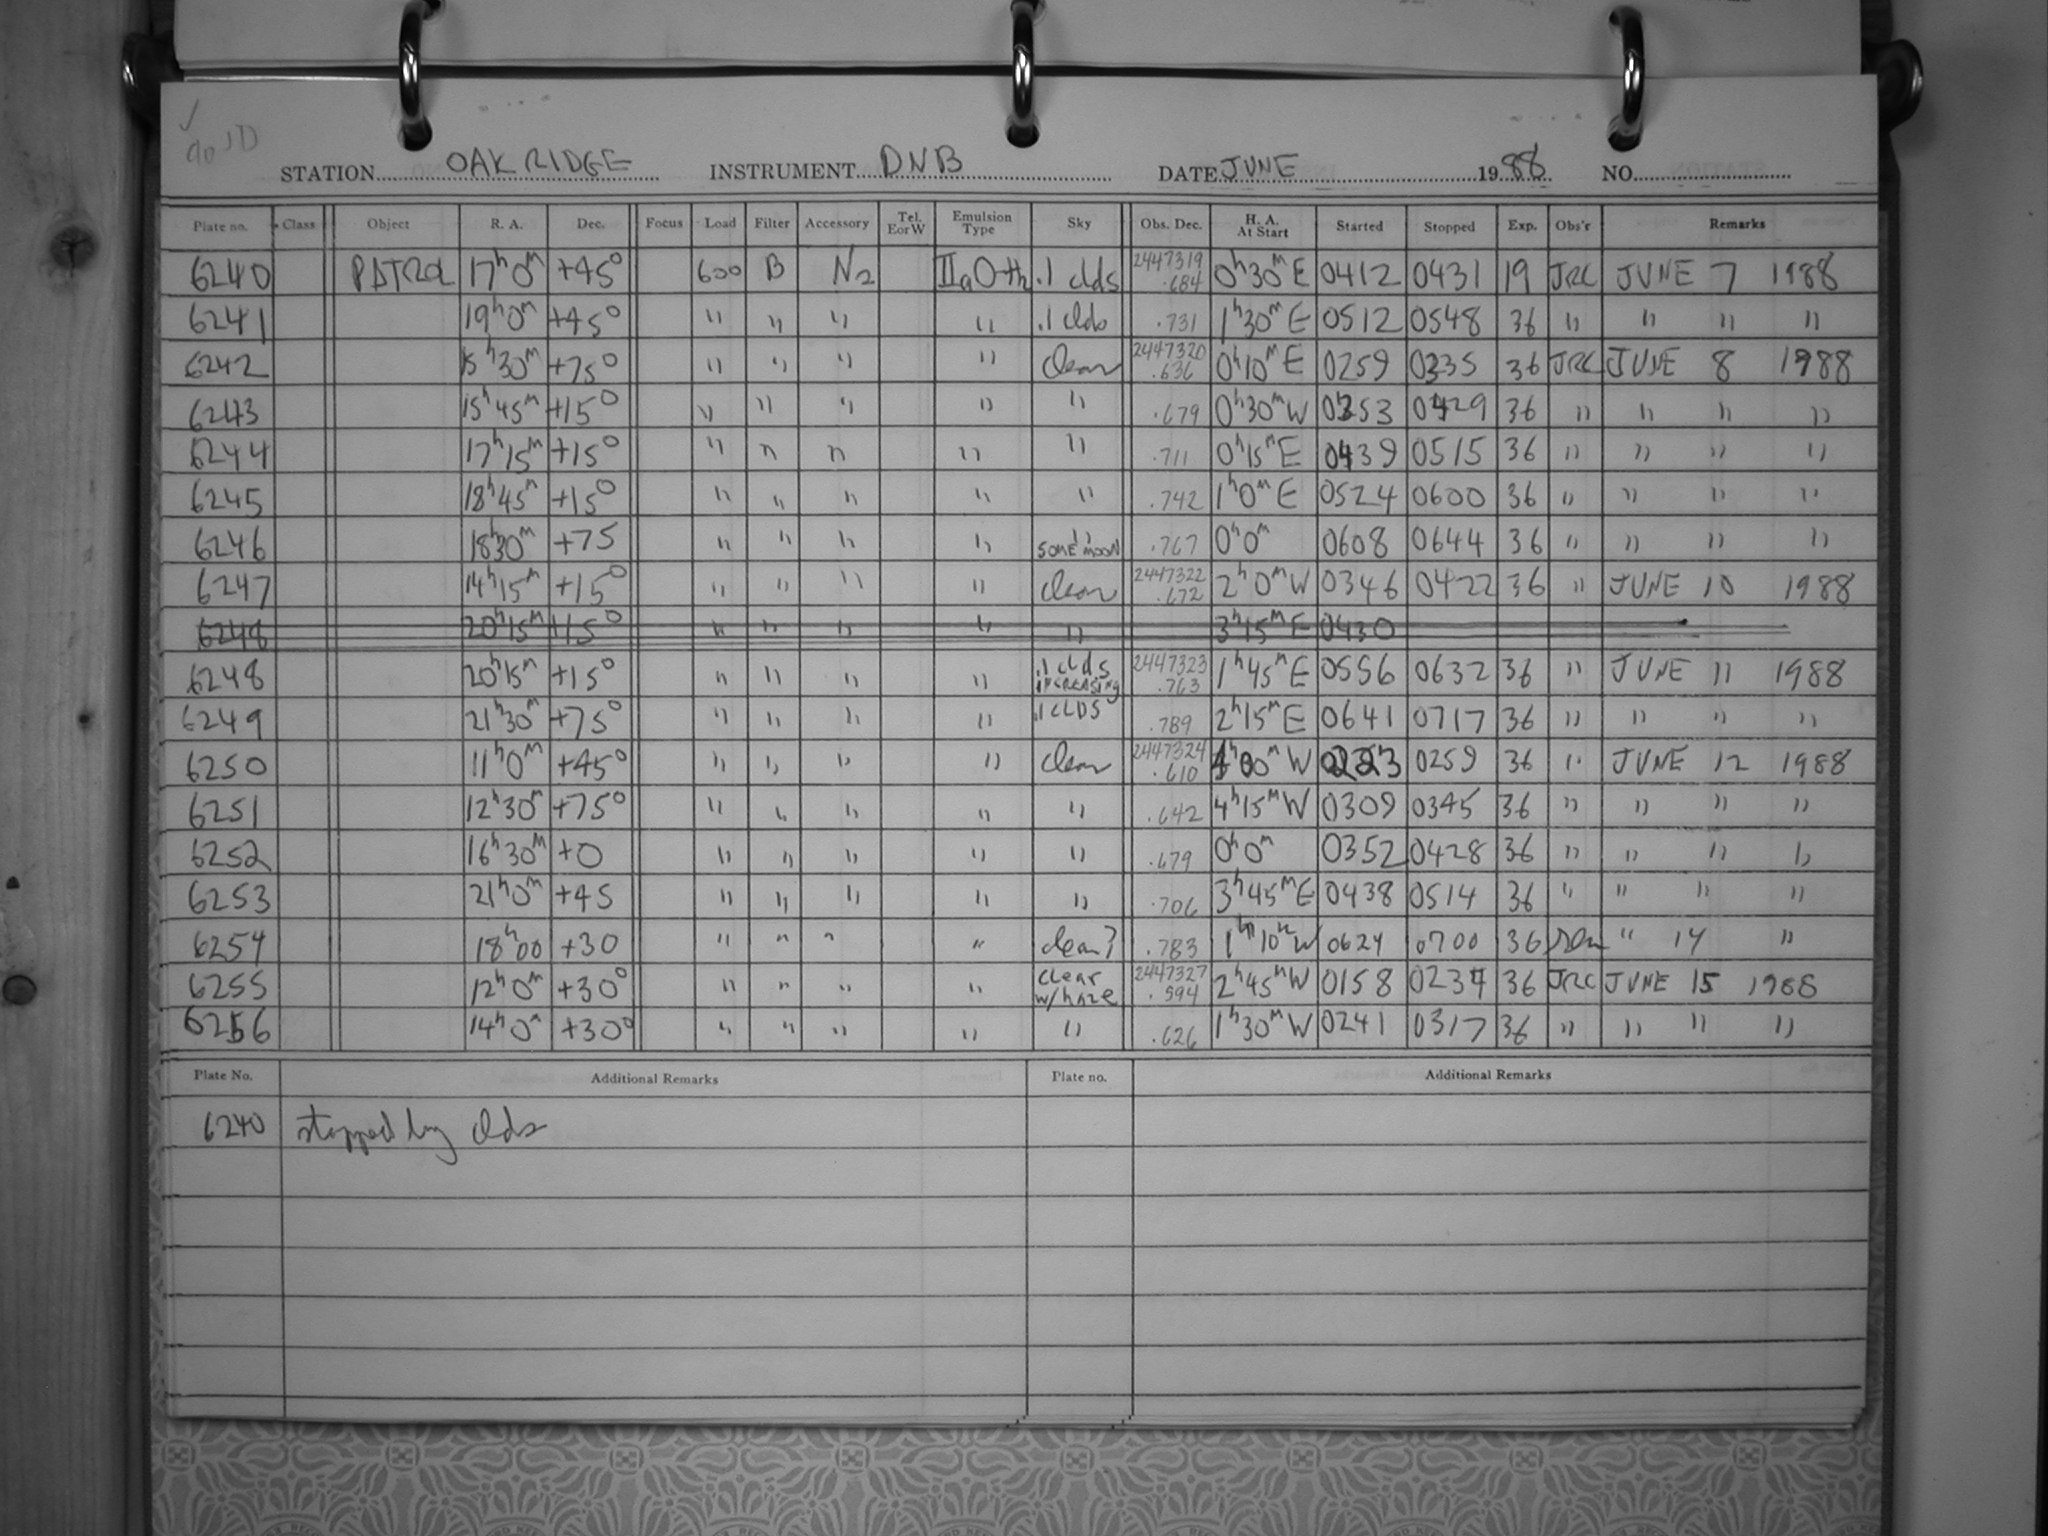 STATION OAK RIDGE INSTRUMENT DNB DATE JUNE 1988 NO.
Plate no. Class Object R. A. Dec. Focus Load Filter Accessory Tel. E or W Emulsion Type Sky Obs. Dec. H. A. At Start Started Stopped Exp. Obs'r Remarks
6240 PATROL 17h 0m +45° 600 B N2 IIaO-th .1 clds 2447319 .684 0h30m E 0412 0431 19 JRC JUNE 7 1988
6241 19h 0m +45° " " " " .1 clds .731 1h30m E 0512 0548 36 " " " "
6242 15h 30m +75° " " " " clear 2447320 .636 0h10m E 0259 0335 36 JRC JUNE 8 1988
6243 15h 45m +15° " " " " " .679 0h30m W 0353 0429 36 " " " "
6244 17h 15m +15° " " " " " .711 0h15m E 0439 0515 36 " " " "
6245 18h 45m +15° " " " " " .742 1h0m E 0524 0600 36 " " " "
6246 18h 30m +75 " " " " " SOME MOON .767 0h0m 0608 0644 36 " " " "
6247 14h 15m +15° " " " " clear 2447322 .672 2h0m W 0346 0422 36 " JUNE 10 1988
6248 20h 15m +15° " " " " " 3h15m E 0430
6248 20h 15m +15° " " " " .1 clds INCREASING 2447323 .763 1h45m E 0556 0632 36 " JUNE 11 1988
6249 21h 30m +75° " " " " .1 CLDS .789 2h15m E 0641 0717 36 " " " "
6250 11h 0m +45° " " " " clear 2447324 .610 4h00m W 0223 0259 36 " JUNE 12 1988
6251 12h 30m +75° " " " " " .642 4h15m W 0309 0345 36 " " " "
6252 16h 30m +0 " " " " " .679 0h0m 0352 0428 36 " " " "
6253 21h 0m +45 " " " " " .706 3h45m E 0438 0514 36 " " " "
6254 18h 00 +30 " " " " clear? .783 1h10m W 0624 0700 36 " 14 "
6255 12h 0m +30° " " " " clear w/haze 2447327 .594 2h45m W 0158 0234 36 JRC JUNE 15 1988
6256 14h 0m +30° " " " " " .626 1h30m W 0241 0317 36 " " " "
Plate No. Additional Remarks Plate no. Additional Remarks
6240 stopped by clds